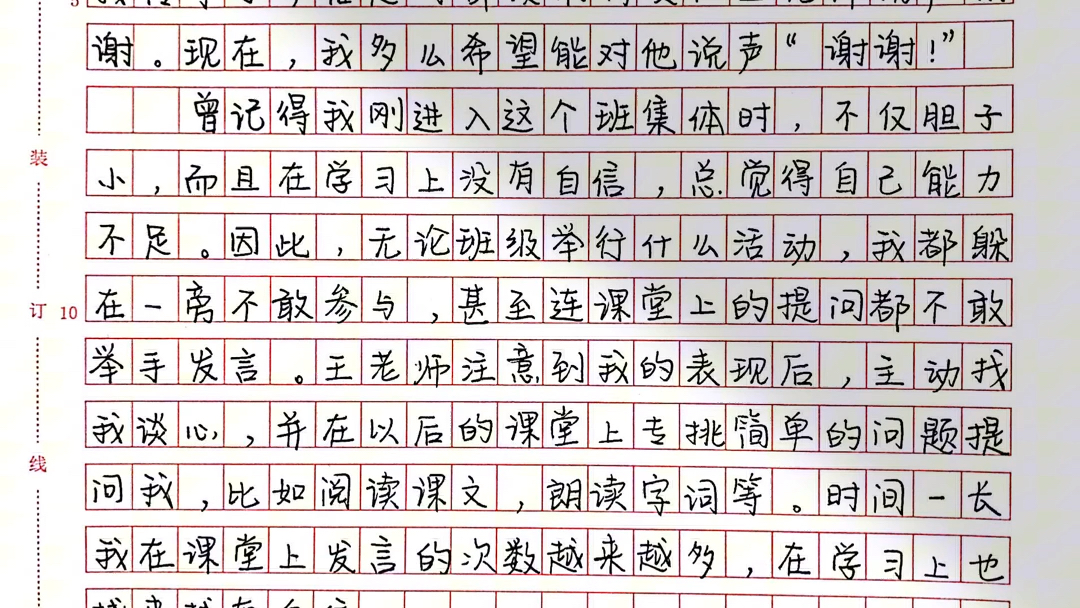 谢。现在，我多么希望能对他说声“谢谢！”
曾记得我刚进入这个班集体时，不仅胆子
小，而且在学习上没有自信，总觉得自己能力
不足。因此，无论班级举行什么活动，我都躲
装
订
线
10
在一旁不敢参与，甚至连课堂上的提问都不敢
举手发言。王老师注意到我的表现后，主动找
我谈心，并在以后的课堂上专挑简单的问题提
问我，比如阅读课文，朗读字词等。时间一长
我在课堂上发言的次数越来越多，在学习上也